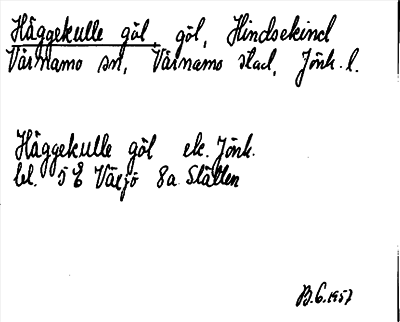 Häggekulle göl göl, Hindsekind
Värnamo sn, Värnamo stad, Jönk. l.
Häggekulle göl ek. Jönk.
bl. 5 E Växjö 8a Slätten
B.G. 1957